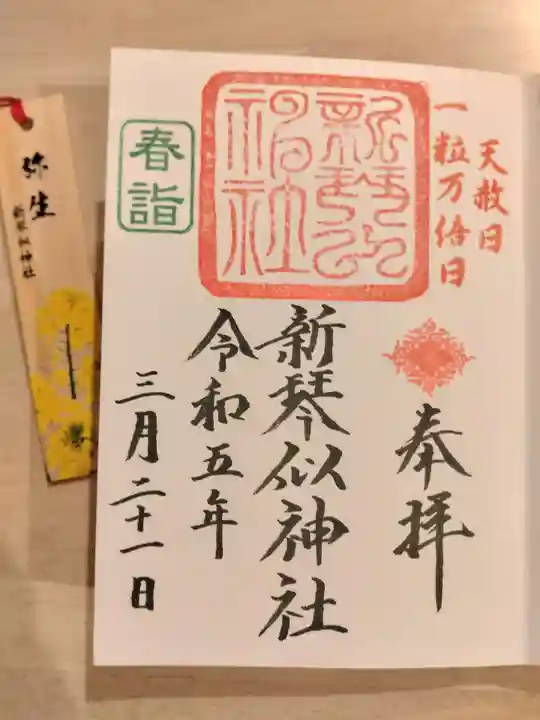 天赦日
一粒万倍日
奉拝
新琴似神社
新琴似神社
令和五年
三月二十一日
春詣
弥生
新琴似神社